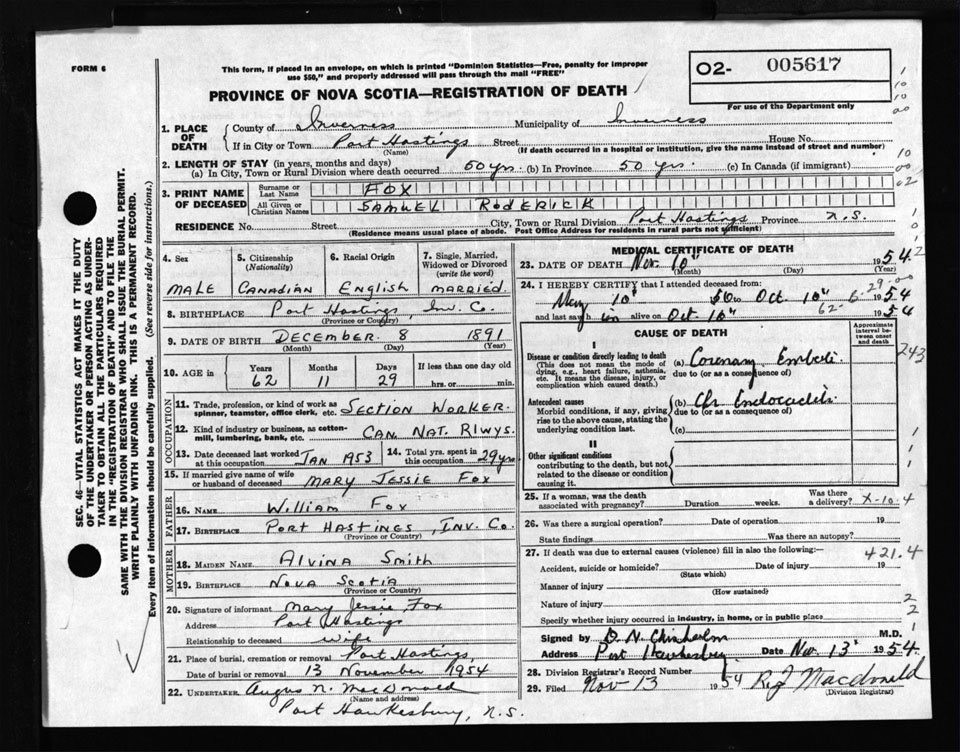 FORM 6
This form, if placed in an envelope, on which is printed "Dominion Statistics—Free, penalty for improper
use $50," and properly addressed will pass through the mail "FREE"
O2- 005617
For use of the Department only
PROVINCE OF NOVA SCOTIA—REGISTRATION OF DEATH
1. PLACE OF DEATH
County of Inverness Municipality of Inverness
If in City or Town Port Hastings Street House No.
(Name) (If death occurred in a hospital or institution, give the name instead of street and number)
2. LENGTH OF STAY (in years, months and days)
(a) In City, Town or Rural Division where death occurred 50 yrs. (b) In Province 50 yrs. (c) In Canada (if immigrant)
3. PRINT NAME OF DECEASED
Surname or Last Name FOX
All Given or Christian Names SAMUEL RODERICK
RESIDENCE No. Street City, Town or Rural Division Port Hastings Province N.S.
(Residence means usual place of abode. Post Office Address for residents in rural parts not sufficient)
4. Sex
MALE
5. Citizenship
(Nationality)
CANADIAN
6. Racial Origin
ENGLISH
7. Single, Married, Widowed or Divorced
(write the word)
MARRIED.
8. BIRTHPLACE Port Hastings, Inv. Co.
(Province or Country)
9. DATE OF BIRTH DECEMBER 8 1891
(Month) (Day) (Year)
10. AGE in
Years Months Days If less than one day old
62 11 29 hrs. or min.
OCCUPATION
11. Trade, profession, or kind of work as
spinner, teamster, office clerk, etc. SECTION WORKER.
12. Kind of industry or business, as cotton-
mill, lumbering, bank, etc. CAN. NAT. RLWYS.
13. Date deceased last worked
at this occupation JAN 1953
14. Total yrs. spent in
this occupation 29 yrs
15. If married give name of wife
or husband of deceased MARY JESSIE FOX
FATHER
16. Name William Fox
17. Birthplace PORT HASTINGS, INV. CO.
(Province or Country)
MOTHER
18. Maiden Name Alvina Smith
19. Birthplace NOVA SCOTIA
(Province or Country)
20. Signature of informant Mary Jessie Fox
Address Port Hastings
Relationship to deceased wife
21. Place of burial, cremation or removal Port Hastings,
Date of burial or removal 13 November 1954
22. Undertaker Angus N. MacDonald
(Name and address)
Port Hawkesbury, N.S.
MEDICAL CERTIFICATE OF DEATH
23. DATE OF DEATH Nov. 10" 1954
(Month) (Day) (Year)
24. I HEREBY CERTIFY that I attended deceased from:
May 10" 50 to Oct. 10" 1954
and last saw h im alive on Oct. 10" 1954
6-29-0
62
CAUSE OF DEATH
Approximate interval between onset and death
I
Disease or condition directly leading to death
(This does not mean the mode of dying, e.g., heart failure, asthenia, etc. It means the disease, injury, or complication which caused death.)
(a) Coronary Emboli
due to (or as a consequence of)
243
Antecedent causes
Morbid conditions, if any, giving rise to the above cause, stating the underlying condition last.
(b) Chr Endocarditis
due to (or as a consequence of)
(c)
II
Other significant conditions
contributing to the death, but not related to the disease or condition causing it.
25. If a woman, was the death
associated with pregnancy? Duration weeks. Was there a delivery? X-10-4
26. Was there a surgical operation? Date of operation 19
State findings Was there an autopsy?
27. If death was due to external causes (violence) fill in also the following:— 421.4
Accident, suicide or homicide? Date of injury 19
(State which)
Manner of injury
(How sustained)
Nature of injury
Specify whether injury occurred in industry, in home, or in public place
Signed by D. N. Chisholm M.D.
Address Port Hawkesbury Date Nov. 13" 1954.
28. Division Registrar's Record Number
29. Filed Nov 13 1954 R. J. Macdonald
(Division Registrar)
SEC. 46—VITAL STATISTICS ACT MAKES IT THE DUTY
OF THE UNDERTAKER OR PERSON ACTING AS UNDER-
TAKER TO OBTAIN ALL THE PARTICULARS REQUIRED
IN THE "REGISTRATION OF DEATH" AND TO FILE THE
SAME WITH THE DIVISION REGISTRAR WHO SHALL ISSUE THE BURIAL PERMIT.
WRITE PLAINLY WITH UNFADING INK. THIS IS A PERMANENT RECORD.
Every item of information should be carefully supplied. (See reverse side for instructions.)